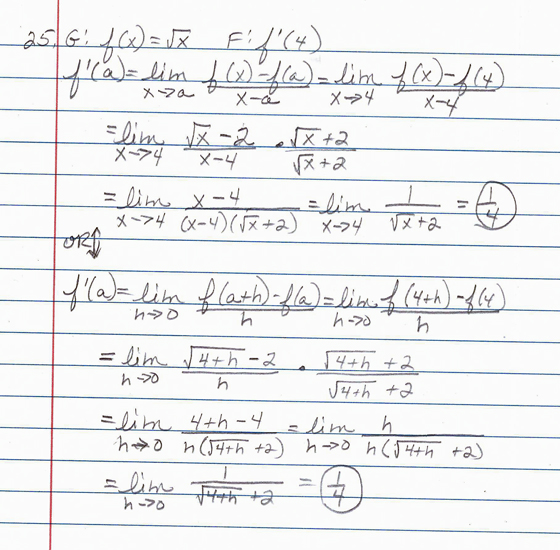 25. G: f(x) = √x F: f'(4)
f'(a) = lim x→a (f(x) - f(a))/(x - a) = lim x→4 (f(x) - f(4))/(x - 4)
= lim x→4 (√x - 2)/(x - 4) • (√x + 2)/(√x + 2)
= lim x→4 (x - 4)/((x - 4)(√x + 2)) = lim x→4 1/(√x + 2) = 1/4
OR⇕
f'(a) = lim h→0 (f(a+h) - f(a))/h = lim h→0 (f(4+h) - f(4))/h
= lim h→0 (√(4+h) - 2)/h • (√(4+h) + 2)/(√(4+h) + 2)
= lim h→0 (4+h-4)/(h(√(4+h) + 2)) = lim h→0 h/(h(√(4+h) + 2))
= lim h→0 1/(√(4+h) + 2) = 1/4